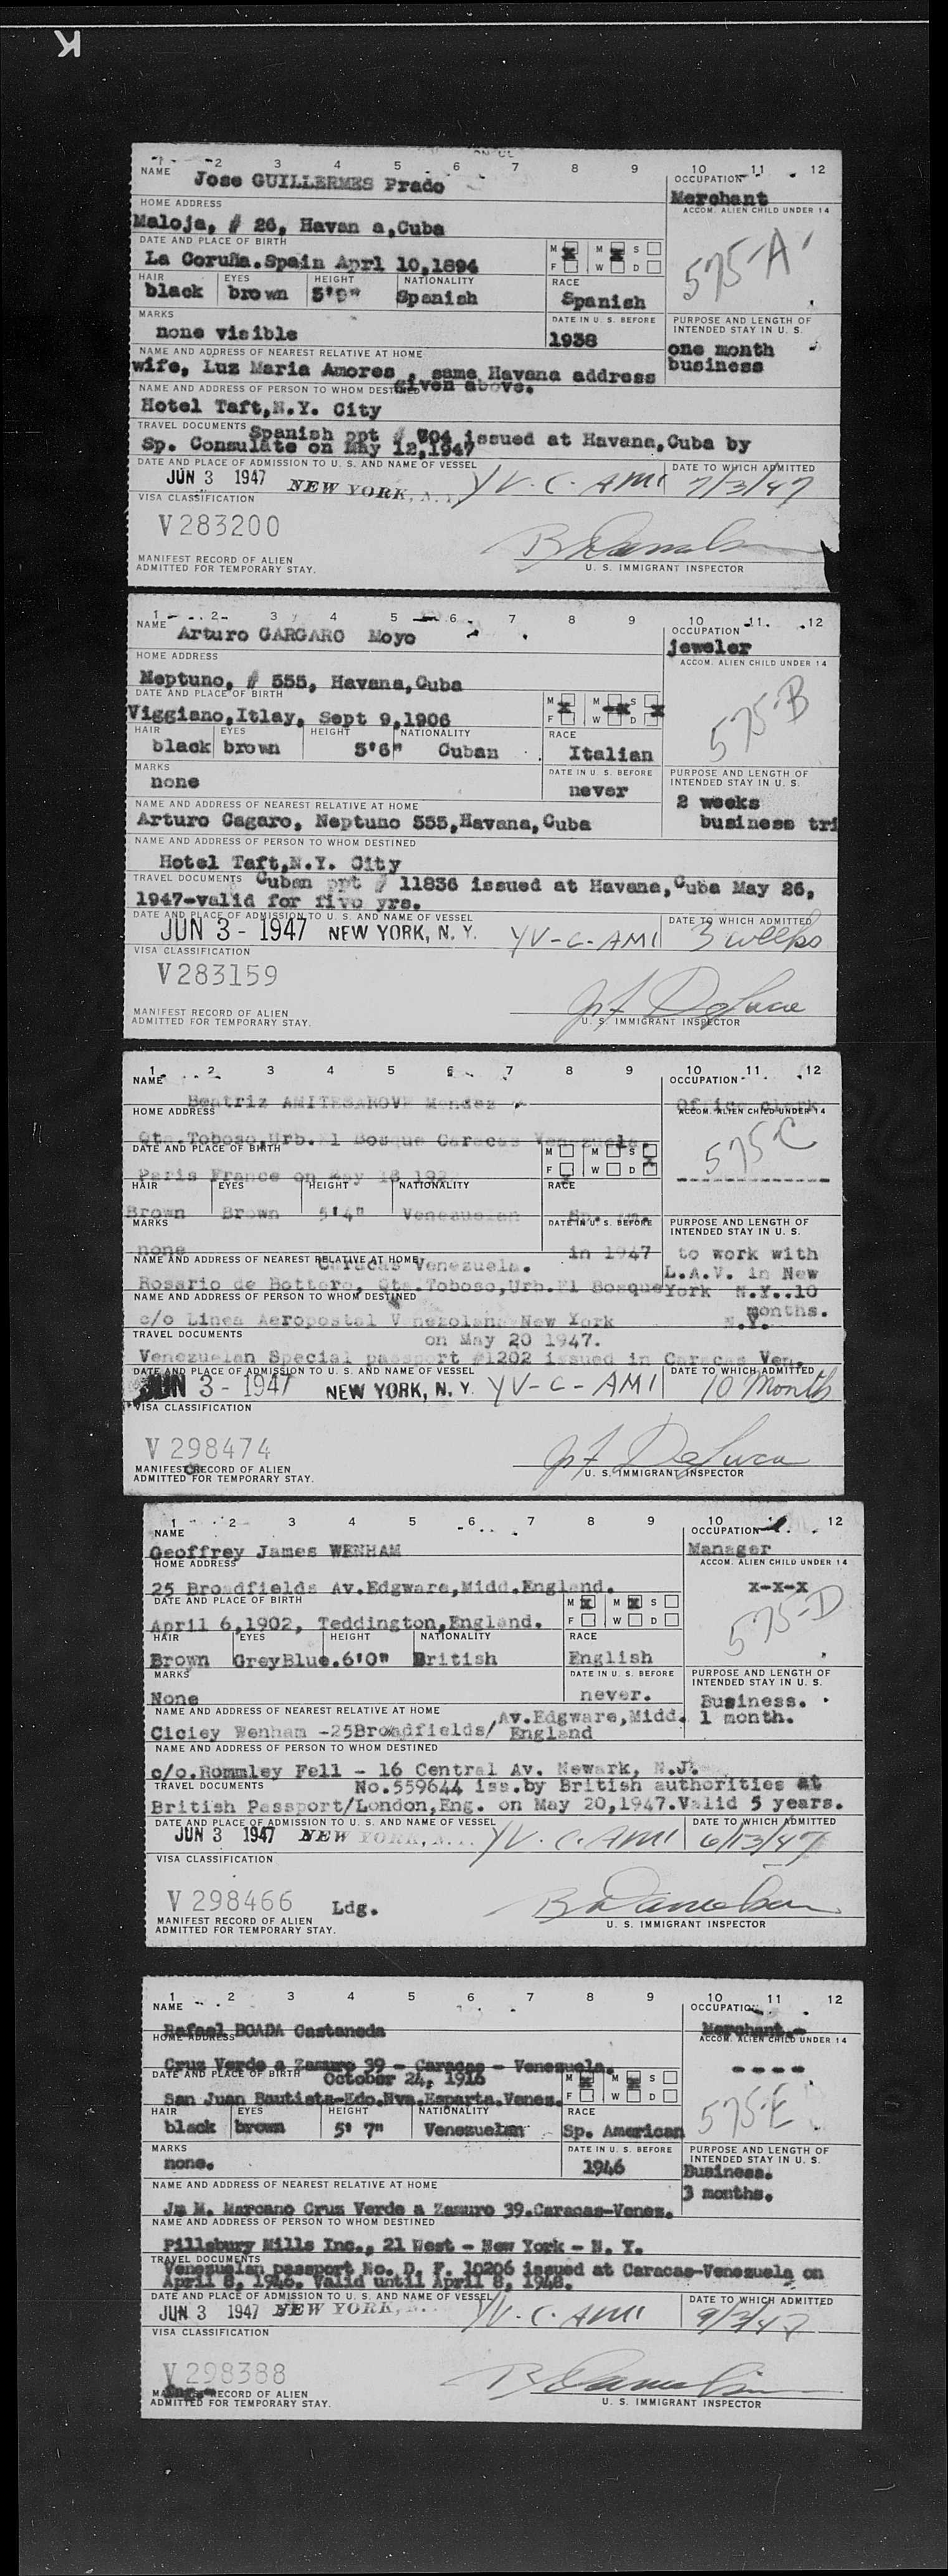 K
1 2 3 4 5 6 7 8 9 10 11 12
NAME Jose GUILLERMES Prado
OCCUPATION Merchant
HOME ADDRESS
ACCOM. ALIEN CHILD UNDER 14
Maloja, # 26, Havan a,Cuba
575-A
DATE AND PLACE OF BIRTH
La Coruña.Spain Aprl 10,1894
M X M X S
F W D
HAIR EYES HEIGHT NATIONALITY RACE
black brown 5'9" Spanish Spanish
MARKS
none visible
DATE IN U. S. BEFORE
1938
PURPOSE AND LENGTH OF INTENDED STAY IN U. S.
one month
business
NAME AND ADDRESS OF NEAREST RELATIVE AT HOME
wife, Luz Maria Amores , same Havana address
given above.
NAME AND ADDRESS OF PERSON TO WHOM DESTINED
Hotel Taft,N.Y. City
TRAVEL DOCUMENTS Spanish ppt # 704 issued at Havana,Cuba by
Sp. Consulate on May 12,1947
DATE AND PLACE OF ADMISSION TO U. S. AND NAME OF VESSEL
DATE TO WHICH ADMITTED
JUN 3 1947 NEW YORK, N. Y. YV-C-AMI 7/3/47
VISA CLASSIFICATION
V283200
MANIFEST RECORD OF ALIEN
ADMITTED FOR TEMPORARY STAY.
U. S. IMMIGRANT INSPECTOR
1 2 3 4 5 6 7 8 9 10 11 12
NAME Arturo GARGARO Moyo
OCCUPATION
jeweler
HOME ADDRESS
ACCOM. ALIEN CHILD UNDER 14
Neptuno, # 555, Havana,Cuba
575-B
DATE AND PLACE OF BIRTH
Viggiano,Itlay, Sept 9,1906
M X M S X
F W D
HAIR EYES HEIGHT NATIONALITY RACE
black brown 5'6" Cuban Italian
MARKS
none
DATE IN U. S. BEFORE
never
PURPOSE AND LENGTH OF INTENDED STAY IN U. S.
2 weeks
business tri
NAME AND ADDRESS OF NEAREST RELATIVE AT HOME
Arturo Gagaro, Neptuno 555,Havana,Cuba
NAME AND ADDRESS OF PERSON TO WHOM DESTINED
Hotel Taft,N.Y. City
TRAVEL DOCUMENTS Cuban ppt # 11836 issued at Havana,Cuba May 26,
1947-valid for five yrs.
DATE AND PLACE OF ADMISSION TO U. S. AND NAME OF VESSEL
DATE TO WHICH ADMITTED
JUN 3 - 1947 NEW YORK, N. Y. YV-C-AMI 3 weeks
VISA CLASSIFICATION
V283159
J F DeLuca
MANIFEST RECORD OF ALIEN
ADMITTED FOR TEMPORARY STAY.
U. S. IMMIGRANT INSPECTOR
1 2 3 4 5 6 7 8 9 10 11 12
NAME
OCCUPATION
Beatriz Mendez
Office clerk
HOME ADDRESS
ACCOM. ALIEN CHILD UNDER 14
Qta.Toboso,Urb.El Bosque Caracas Venezuela.
575-C
DATE AND PLACE OF BIRTH
M M S
F W D
Paris France on May 18
HAIR EYES HEIGHT NATIONALITY RACE
Brown Brown 5'4" Venezuelan Sp. Am.
MARKS
none
DATE IN U. S. BEFORE
in 1947
PURPOSE AND LENGTH OF INTENDED STAY IN U. S.
to work with
L.A.V. in New
York N.Y..10
months.
NAME AND ADDRESS OF NEAREST RELATIVE AT HOME
Caracas Venezuela.
Rosario de Bottero, Qta.Toboso,Urb.El Bosque
NAME AND ADDRESS OF PERSON TO WHOM DESTINED
c/o Linea Aeropostal V nezolana New York N.Y.
TRAVEL DOCUMENTS on May 20 1947.
Venezuelan Special passport #1202 issued in Caracas Ven.
DATE AND PLACE OF ADMISSION TO U. S. AND NAME OF VESSEL
DATE TO WHICH ADMITTED
JUN 3 - 1947 NEW YORK, N. Y. YV-C-AMI 10 Month
VISA CLASSIFICATION
V 298474
J F DeLuca
MANIFEST RECORD OF ALIEN
ADMITTED FOR TEMPORARY STAY.
U. S. IMMIGRANT INSPECTOR
1 2 3 4 5 6 7 8 9 10 11 12
NAME
OCCUPATION
Geoffrey James WENHAM
Manager
HOME ADDRESS
ACCOM. ALIEN CHILD UNDER 14
25 Broadfields Av.Edgware,Midd.England.
X-X-X
575-D
DATE AND PLACE OF BIRTH
M X M X S
F W D
April 6,1902, Teddington,England.
HAIR EYES HEIGHT NATIONALITY RACE
Brown GreyBlue.6'0" British English
MARKS
None
DATE IN U. S. BEFORE
never.
PURPOSE AND LENGTH OF INTENDED STAY IN U. S.
Business.
1 month.
NAME AND ADDRESS OF NEAREST RELATIVE AT HOME
Av.Edgware,Midd.
Ciciey Wenham -25Broadfields/ England
NAME AND ADDRESS OF PERSON TO WHOM DESTINED
c/o.Rommley Fell - 16 Central Av. Newark, N.J.
TRAVEL DOCUMENTS No.559644 iss.by British authorities at
British Passport/London,Eng. on May 20,1947.Valid 5 years.
DATE AND PLACE OF ADMISSION TO U. S. AND NAME OF VESSEL
DATE TO WHICH ADMITTED
JUN 3 1947 NEW YORK, N. Y. YV-C-AMI 6/13/47
VISA CLASSIFICATION
V 298466 Ldg.
MANIFEST RECORD OF ALIEN
ADMITTED FOR TEMPORARY STAY.
U. S. IMMIGRANT INSPECTOR
1 2 3 4 5 6 7 8 9 10 11 12
NAME
OCCUPATION
Rafael BOADA Castaneda
Merchant.-
HOME ADDRESS
ACCOM. ALIEN CHILD UNDER 14
Cruz Verde a Zamuro 39 - Caracas - Venezuela.
----
DATE AND PLACE OF BIRTH October 24, 1916
M X M X S
F W D
San Juan Bautista-Edo.Nva.Esparta.Venez.
575-E
HAIR EYES HEIGHT NATIONALITY RACE
black brown 5' 7" Venezuelan Sp. American
MARKS
none.
DATE IN U. S. BEFORE
1946
PURPOSE AND LENGTH OF INTENDED STAY IN U. S.
Business.
3 months.
NAME AND ADDRESS OF NEAREST RELATIVE AT HOME
M. Marcano Cruz Verde a Zamuro 39.Caracas-Venez.
NAME AND ADDRESS OF PERSON TO WHOM DESTINED
Pillsbury Mills Inc., 21 West - New York - N. Y.
TRAVEL DOCUMENTS
Venezuelan passport No. D. F. 10206 issued at Caracas-Venezuela on
April 8, 1946. Valid until April 8, 1948.
DATE AND PLACE OF ADMISSION TO U. S. AND NAME OF VESSEL
DATE TO WHICH ADMITTED
JUN 3 1947 NEW YORK, YV-C-AMI 9/3/47
VISA CLASSIFICATION
V 298388
MANIFEST RECORD OF ALIEN
ADMITTED FOR TEMPORARY STAY.
U. S. IMMIGRANT INSPECTOR